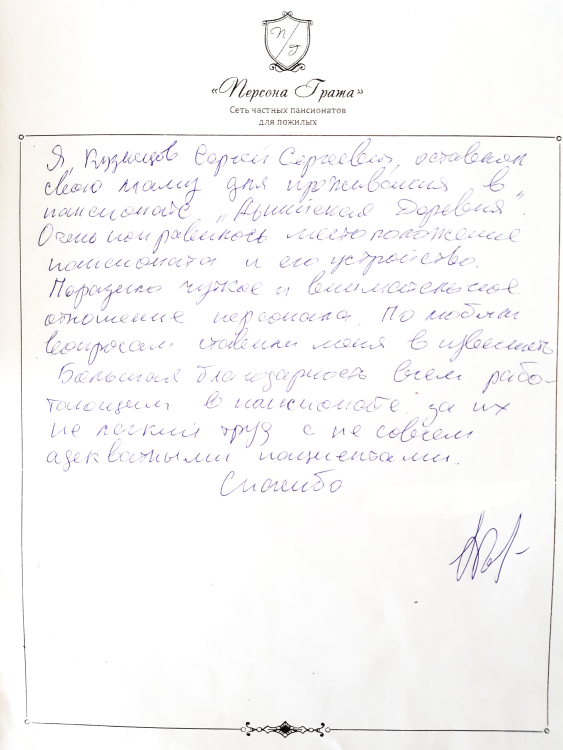 П/Г
«Персона Гратa»
Сеть частных пансионатов
для пожилых
Я, Кузнецов Сергей Сергеевич, оставлял
свою маму для проживания в
пансионате „Дымская Деревня".
Очень понравилось местоположение
пансионата и его устройство.
Поразило чуткое и внимательное
отношение персонала. По любым
вопросам ставили меня в известность
Большая благодарность всем рабо-
тающим в пансионате за их
не легкий труд с не совсем
адекватными пациентами.
Спасибо